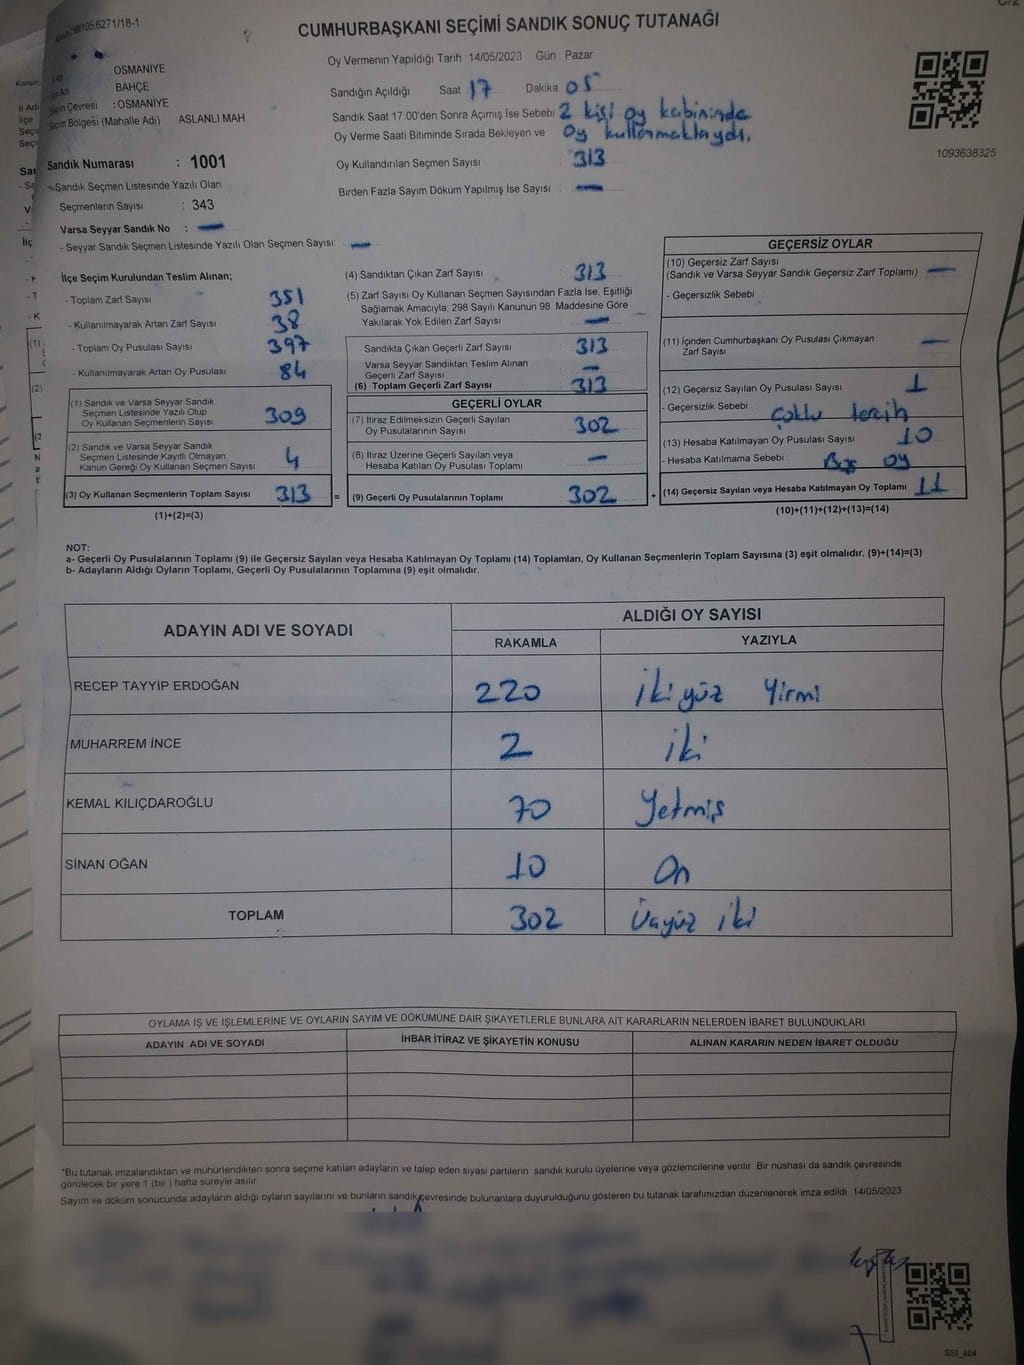 CUMHURBAŞKANI SEÇİMİ SANDIK SONUÇ TUTANAĞI
Oy Vermenin Yapıldığı Tarih 14/05/2023 Gün Pazar
OSMANİYE
BAHÇE
Seçim Çevresi : OSMANİYE
Seçim Bölgesi (Mahalle Adı) ASLANLI MAH
Sandık Numarası : 1001
- Sandık Seçmen Listesinde Yazılı Olan
Seçmenlerin Sayısı : 343
Varsa Seyyar Sandık No : —
- Seyyar Sandık Seçmen Listesinde Yazılı Olan Seçmen Sayısı: —
Sandığın Açıldığı Saat 17 Dakika 05
Sandık Saat 17.00'den Sonra Açımış İse Sebebi 2 kişi oy kabininde
Oy Verme Saati Bitiminde Sırada Bekleyen ve oy kullanmaktaydı.
Oy Kullandırılan Seçmen Sayısı : 313
Birden Fazla Sayım Döküm Yapılmış İse Sayısı : —
1093638325
İlçe Seçim Kurulundan Teslim Alınan;
- Toplam Zarf Sayısı 351
- Kullanılmayarak Artan Zarf Sayısı 38
- Toplam Oy Pusulası Sayısı 397
- Kullanılmayarak Artan Oy Pusulası 84
(1) Sandık ve Varsa Seyyar Sandık
Seçmen Listesinde Yazılı Olup
Oy Kullanan Seçmenlerin Sayısı 309
(2) Sandık ve Varsa Seyyar Sandık
Seçmen Listesinde Kayıtlı Olmayan
Kanun Gereği Oy Kullanan Seçmen Sayısı 4
(3) Oy Kullanan Seçmenlerin Toplam Sayısı 313
(1)+(2)=(3)
(4) Sandıktan Çıkan Zarf Sayısı : 313
(5) Zarf Sayısı Oy Kullanan Seçmen Sayısından Fazla İse, Eşitliği
Sağlamak Amacıyla, 298 Sayılı Kanunun 98. Maddesine Göre
Yakılarak Yok Edilen Zarf Sayısı : —
Sandıkta Çıkan Geçerli Zarf Sayısı : 313
Varsa Seyyar Sandıktan Teslim Alınan
Geçerli Zarf Sayısı : —
(6) Toplam Geçerli Zarf Sayısı : 313
GEÇERLİ OYLAR
(7) İtiraz Edilmeksizin Geçerli Sayılan
Oy Pusulalarının Sayısı : 302
(8) İtiraz Üzerine Geçerli Sayılan veya
Hesaba Katılan Oy Pusulası Toplamı : —
= (9) Geçerli Oy Pusulalarının Toplamı : 302 +
GEÇERSİZ OYLAR
(10) Geçersiz Zarf Sayısı
(Sandık ve Varsa Seyyar Sandık Geçersiz Zarf Toplamı) : —
- Geçersizlik Sebebi :
(11) İçinden Cumhurbaşkanı Oy Pusulası Çıkmayan
Zarf Sayısı : —
(12) Geçersiz Sayılan Oy Pusulası Sayısı : 1
- Geçersizlik Sebebi : Çoklu tercih
(13) Hesaba Katılmayan Oy Pusulası Sayısı : 10
- Hesaba Katılmama Sebebi : Boş oy
(14) Geçersiz Sayılan veya Hesaba Katılmayan Oy Toplamı : 11
(10)+(11)+(12)+(13)=(14)
NOT:
a- Geçerli Oy Pusulalarının Toplamı (9) ile Geçersiz Sayılan veya Hesaba Katılmayan Oy Toplamı (14) Toplamları, Oy Kullanan Seçmenlerin Toplam Sayısına (3) eşit olmalıdır. (9)+(14)=(3)
b- Adayların Aldığı Oyların Toplamı, Geçerli Oy Pusulalarının Toplamına (9) eşit olmalıdır.
ADAYIN ADI VE SOYADI ALDIĞI OY SAYISI
RAKAMLA YAZIYLA
RECEP TAYYİP ERDOĞAN 220 İki yüz Yirmi
MUHARREM İNCE 2 iki
KEMAL KILIÇDAROĞLU 70 Yetmiş
SİNAN OĞAN 10 On
TOPLAM 302 Üçyüz iki
OYLAMA İŞ VE İŞLEMLERİNE VE OYLARIN SAYIM VE DÖKÜMÜNE DAİR ŞİKAYETLERLE BUNLARA AİT KARARLARIN NELERDEN İBARET BULUNDUKLARI
ADAYIN ADI VE SOYADI İHBAR İTİRAZ VE ŞİKAYETİN KONUSU ALINAN KARARIN NEDEN İBARET OLDUĞU
*Bu tutanak imzalandıktan ve mühürlendikten sonra seçime katılan adayların ve talep eden siyasi partilerin sandık kurulu üyelerine veya gözlemcilerine verilir. Bir nüshası da sandık çevresinde
görülecek bir yere 1 (bir ) hafta süreyle asılır.
Sayım ve döküm sonucunda adayların aldığı oyların sayılarını ve bunların sandık çevresinde bulunanlara duyurulduğunu gösteren bu tutanak tarafımızdan düzenlenerek imza edildi. 14/05/2023
SSI_404